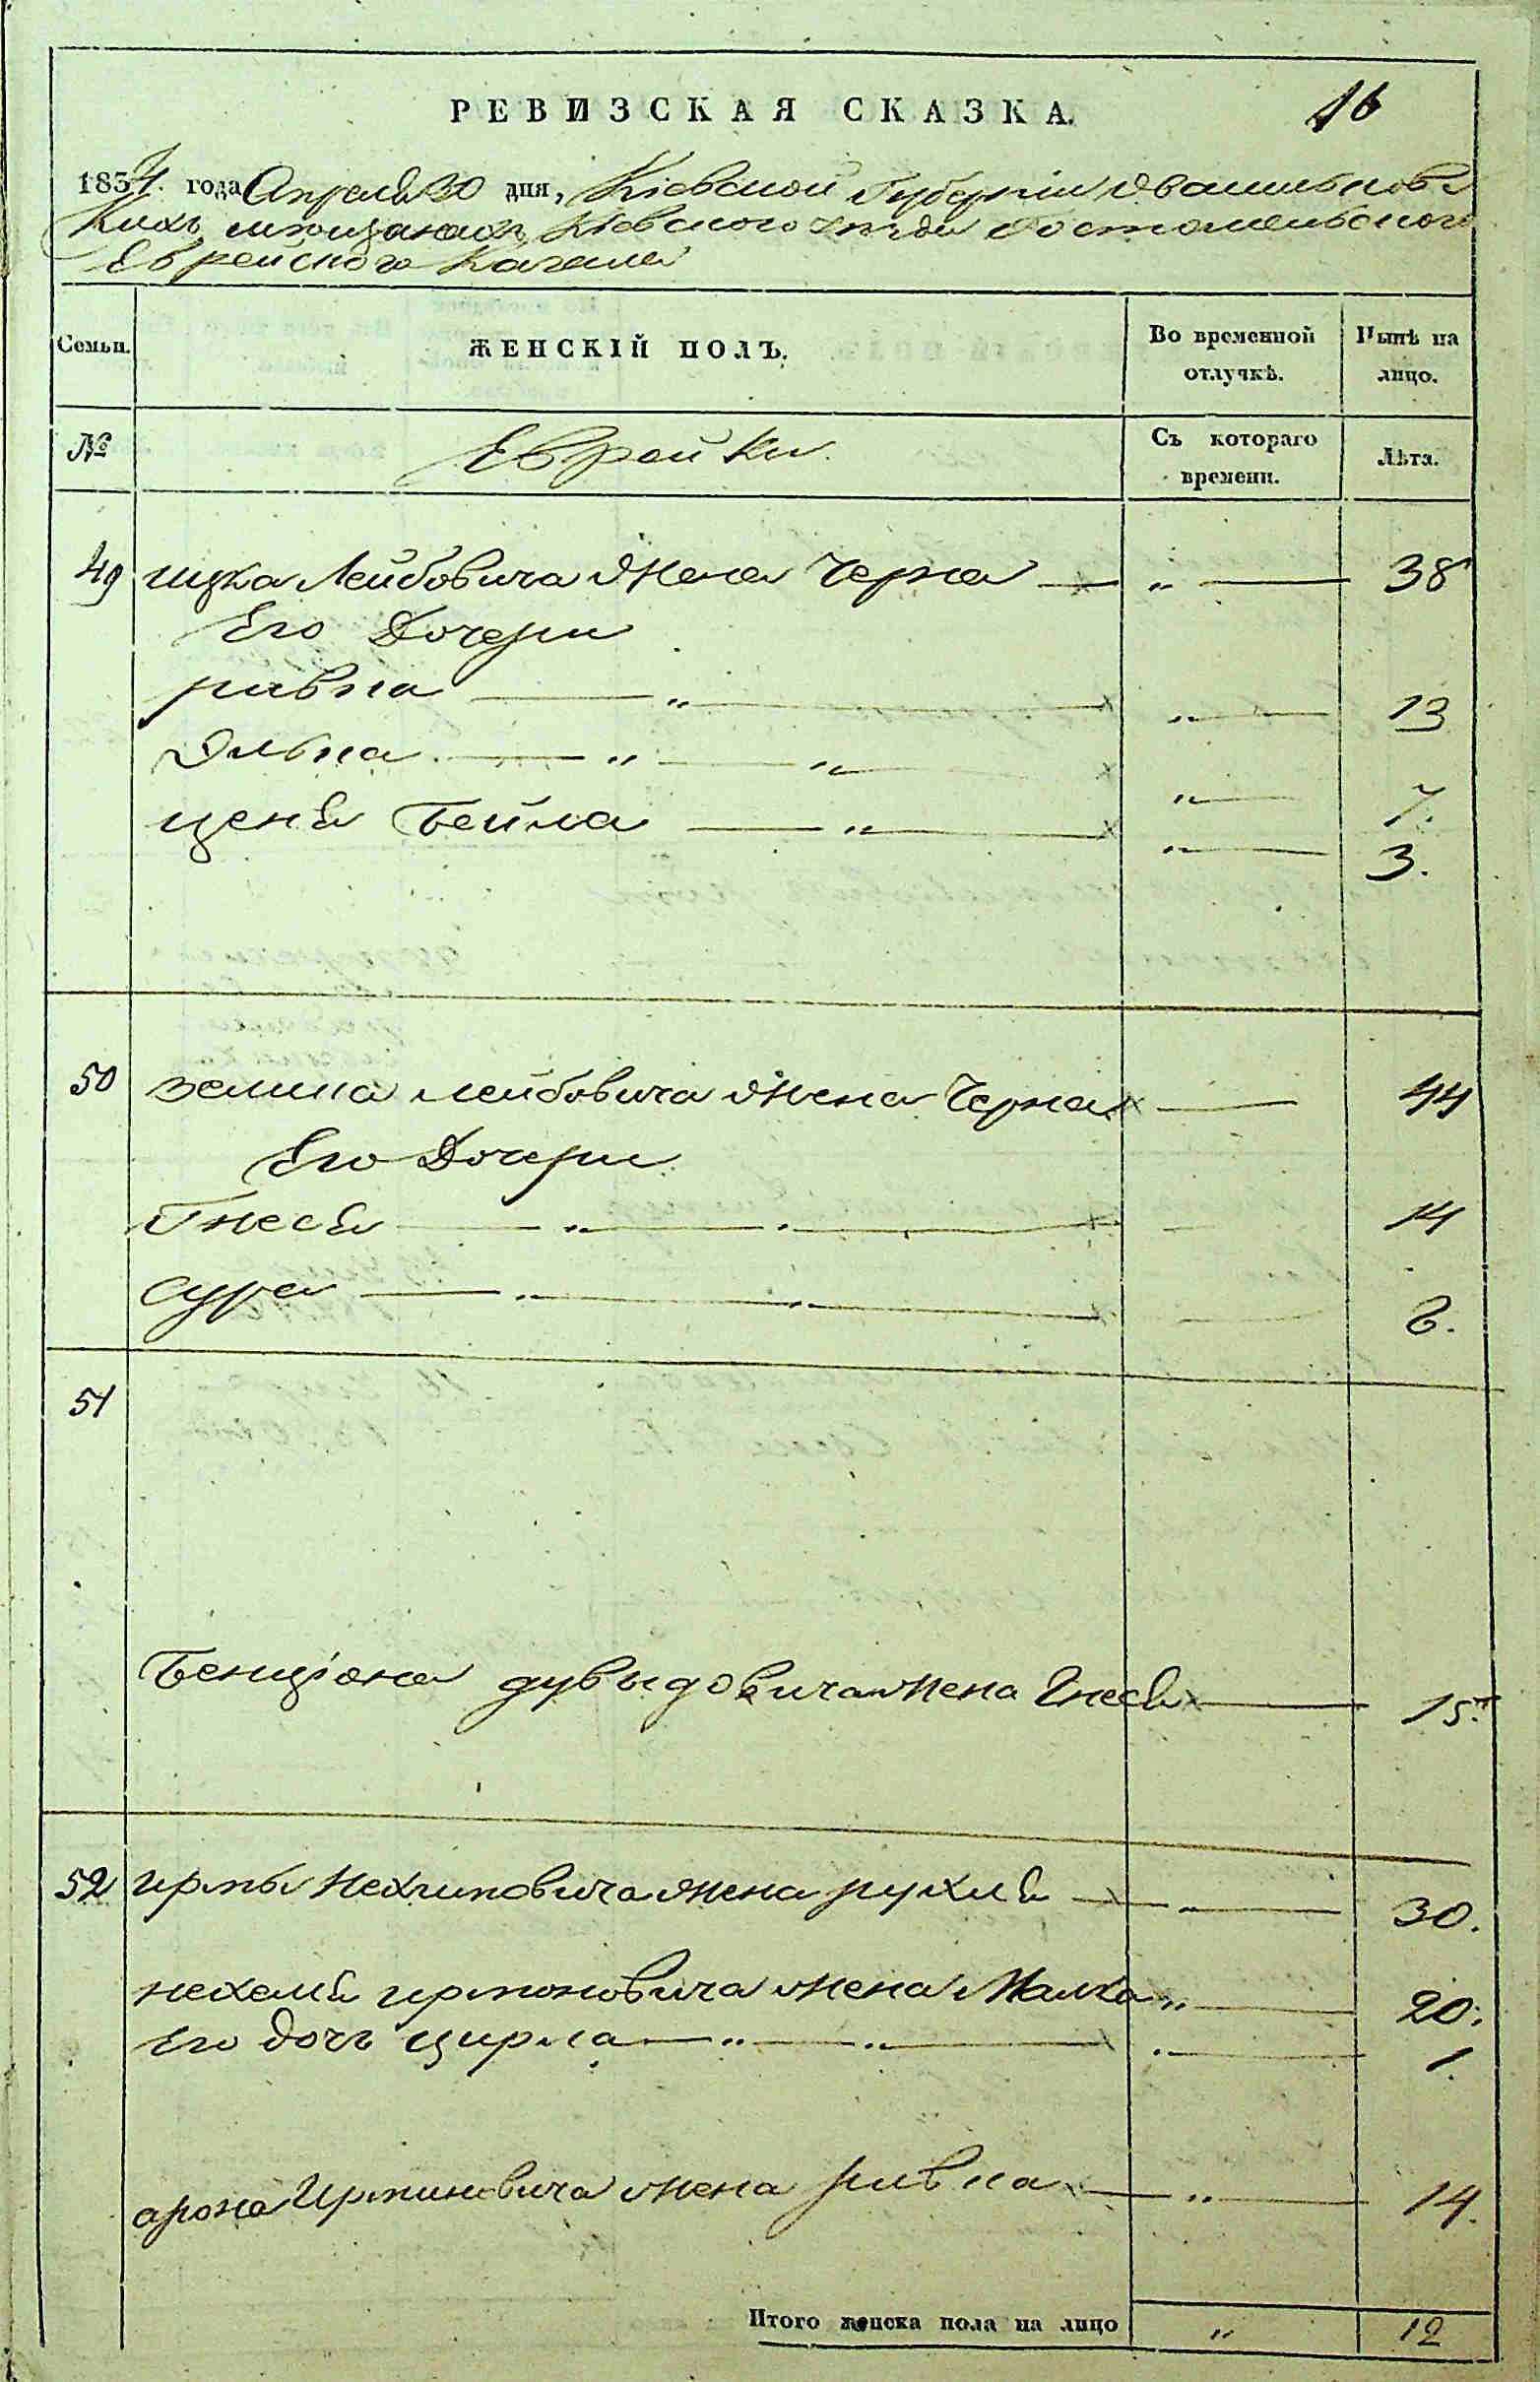 РЕВИЗСКАЯ СКАЗКА. 16
1834. года Апреля 30 дня, Кіевской Губерніи Овасильков
кихъ мещанахъ Кіевского уезда Гостомельского
Еврейского Кагала
Семьи. ЖЕНСКІЙ ПОЛЪ. Во временной отлучкѣ. Нынѣ на лицо.
№ Еврейки. Съ котораго времени. Лѣта.
49 ицка Лейбовича жена Черна — „ — 38
Его Дочери
ривка — „ — „ — 13
Элька — „ — „ „ — 7.
ценя Бейла — „ — „ — 3.
50 зелика лейбовича жена Черна — 44
Его Дочери
Гнеся — „ — 14
сура — „ — „ — 8.
51
Бенціона дувыдовича жена Гнеся — 15.
52 жена рухля — „ — 30.
жена Малка „ — 20.
Его дочь цирла — „ — „ — „ — 1.
арона жена ривка — „ — 14.
Итого женска пола на лицо „ 12